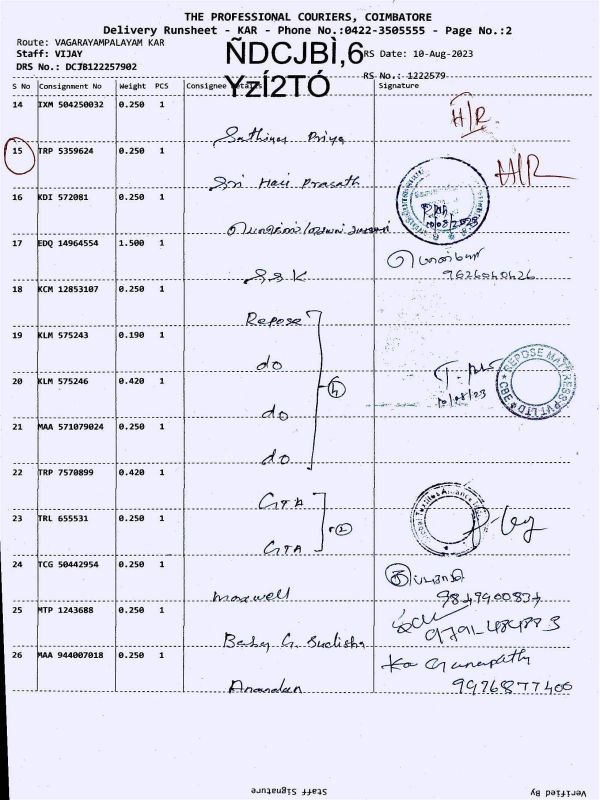 THE PROFESSIONAL COURIERS, COIMBATORE
Delivery Runsheet - KAR - Phone No.:0422-3505555 - Page No.:2
Route: VAGARAYAMPALAYAM KAR
Staff: VIJAY
ÑDCJBÌ,6 RS Date: 10-Aug-2023
DRS No.: DCJB122257902
YzÍ2TÓ RS No.: 1222579
S No Consignment No Weight PCS Consignee Details Signature
14 IXM 504250032 0.250 1
Sathiya Priya H/R
15 TRP 5359624 0.250 1
Sri Hari Prasath H/R
16 KDI 572081 0.250 1
10/08/2023
17 EDQ 14964554 1.500 1
SSK 9626040426
18 KCM 12853107 0.250 1
Repose
19 KLM 575243 0.190 1
do
REPOSE MATTRESS PVT LTD CBE
20 KLM 575246 0.420 1
do 4 10/08/23
21 MAA 571079024 0.250 1
do
22 TRP 7570899 0.420 1
GTA
23 TRL 655531 0.250 1
GTA 2
24 TCG 50442954 0.250 1
Maxwell 9849900834
25 MTP 1243688 0.250 1
Baby G. Sudisha
26 MAA 944007018 0.250 1
Anandan 9976877400
Staff Signature Verified By